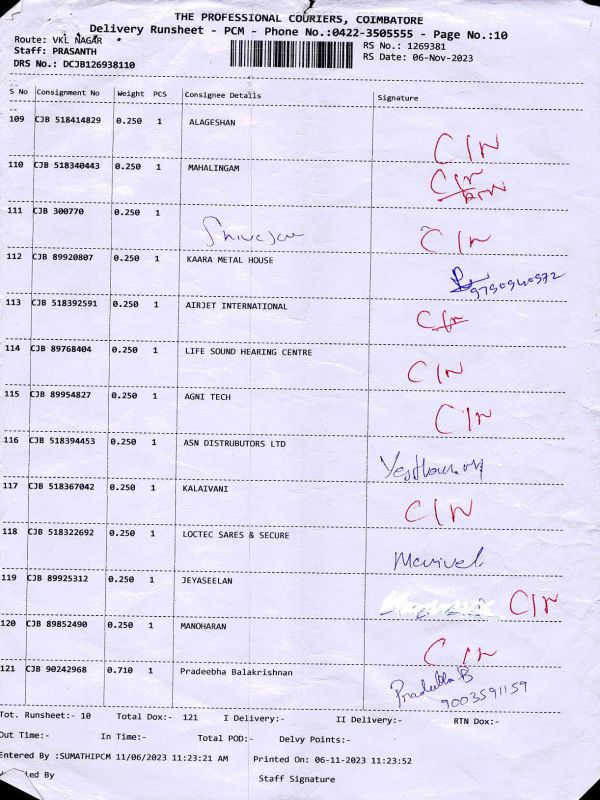 THE PROFESSIONAL COURIERS, COIMBATORE
Delivery Runsheet - PCM - Phone No.:0422-3505555 - Page No.:10
Route: VKL NAGAR
RS No.: 1269381
Staff: PRASANTH
RS Date: 06-Nov-2023
DRS No.: DCJB126938110
S No Consignment No Weight PCS Consignee Details Signature
109 CJB 518414829 0.250 1 ALAGESHAN CIN
110 CJB 518340443 0.250 1 MAHALINGAM CIN
111 CJB 300770 0.250 1 CIN
112 CJB 89920807 0.250 1 KAARA METAL HOUSE
113 CJB 518392591 0.250 1 AIRJET INTERNATIONAL
114 CJB 89768404 0.250 1 LIFE SOUND HEARING CENTRE CIN
115 CJB 89954827 0.250 1 AGNI TECH CIN
116 CJB 518394453 0.250 1 ASN DISTRUBUTORS LTD
117 CJB 518367042 0.250 1 KALAIVANI CIN
118 CJB 518322692 0.250 1 LOCTEC SARES & SECURE
119 CJB 89925312 0.250 1 JEYASEELAN CIN
120 CJB 89852490 0.250 1 MANOHARAN CIN
121 CJB 90242968 0.710 1 Pradeebha Balakrishnan Pradeebha B
9003591159
Tot. Runsheet:- 10 Total Dox:- 121 I Delivery:- II Delivery:- RTN Dox:-
Out Time:- In Time:- Total POD:- Delvy Points:-
Entered By :SUMATHIPCM 11/06/2023 11:23:21 AM Printed On: 06-11-2023 11:23:52
By Staff Signature